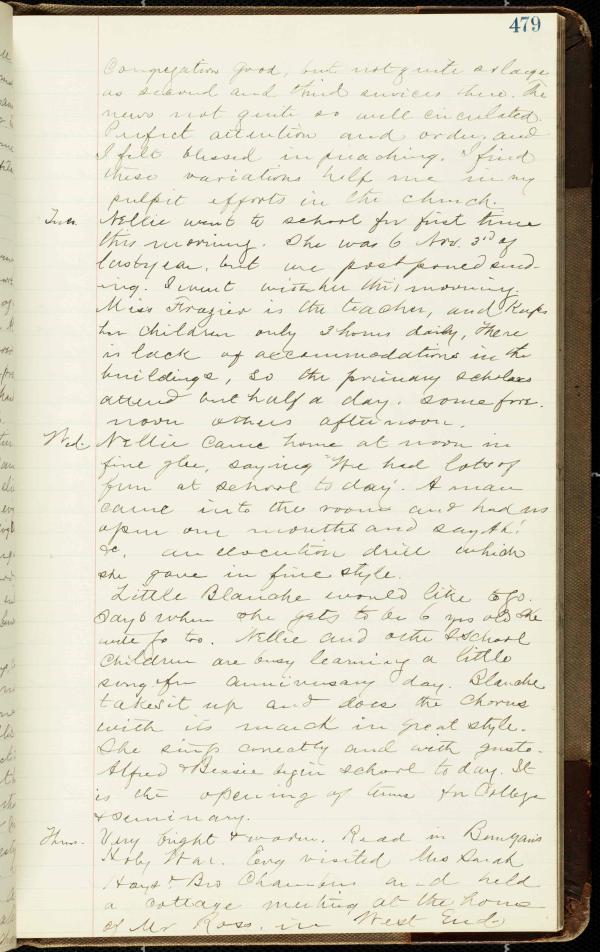 479
Congregation good, but not quite so large
as second and third services there. The
news not quite so well circulated.
Perfect attention and order, and
I felt blessed in preaching. I find
these variations help me in my
pulpit efforts in the church.
Tues. Nellie went to school for first time
this morning. She was 6 Nov. 3rd of
last year, but we postponed send-
ing. I went with her this morning.
Miss Frazier is the teacher, and keeps
her children only 3 hours daily, there
is lack of accommodations in the
buildings, so the primary scholars
attend but half a day. some fore-
noon others afternoon.
Wed. Nellie came home at noon in
fine glee, saying "We had lots of
fun at school to day". A man
came into the room and had us
open our mouths and say Ah!
&c. an elocution drill which
she gave in fine style.
Little Blanche would like to go.
Says when she gets to be 6 yrs old she
will go too. Nellie and other S school
children are busy learning a little
song for anniversary day. Blanche
takes it up and does the chorus
with its march in great style.
She sings correctly and with gusto.
Alfred & Bessie begin school to day. It
is the opening of term for College
& seminary.
Thurs. Very bright & warm. Read in Bunyan's
Holy War. Eve visited Mrs Sarah
Hays & Bro Chambers and held
a cottage meeting at the home
of Mr Ross. in West End.